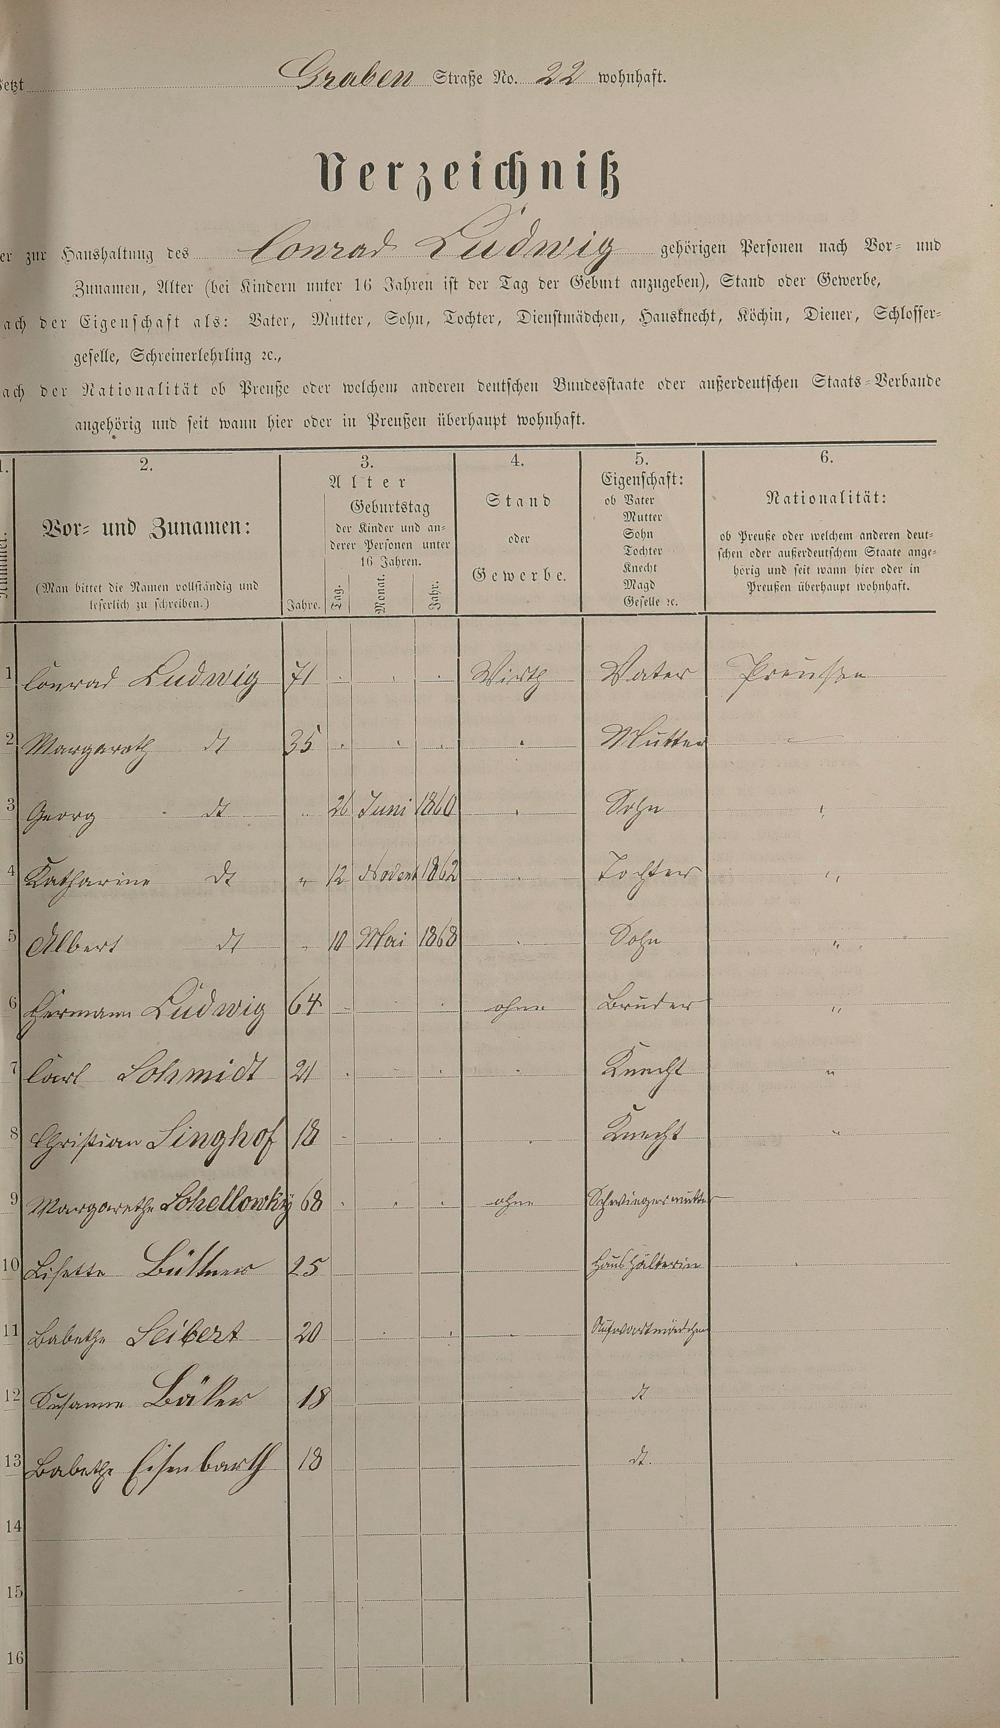 Jetzt Graben Straße No. 22 wohnhaft.
Verzeichniß
der zur Haushaltung des Conrad Ludwig gehörigen Personen nach Vor- und
Zunamen, Alter (bei Kindern unter 16 Jahren ist der Tag der Geburt anzugeben), Stand oder Gewerbe,
nach der Eigenschaft als: Vater, Mutter, Sohn, Tochter, Dienstmädchen, Hausknecht, Köchin, Diener, Schlosser-
geselle, Schreinerlehrling ꝛc.,
nach der Nationalität ob Preuße oder welchem anderen deutschen Bundesstaate oder außerdeutschen Staats-Verbande
angehörig und seit wann hier oder in Preußen überhaupt wohnhaft.
1. 2. 3. 4. 5. 6.
Nummer.
Vor- und Zunamen:
(Man bittet die Namen vollständig und
leserlich zu schreiben.)
Alter
Geburtstag
der Kinder und an-
derer Personen unter
16 Jahren.
Jahre. Tag. Monat. Jahr.
Stand
oder
Gewerbe.
Eigenschaft:
ob Vater
Mutter
Sohn
Tochter
Knecht
Magd
Geselle ꝛc.
Nationalität:
ob Preuße oder welchem anderen deut-
schen oder außerdeutschem Staate ange-
hörig und seit wann hier oder in
Preußen überhaupt wohnhaft.
1 Conrad Ludwig 71 Wirth Vater Preußen
2 Margareth dt 35 Mutter
3 Georg dt 26 Juni 1860 Sohn "
4 Katharine dt " 12 Novemb 1862 Tochter "
5 Albert dt 10 Mai 1868 Sohn "
6 Hermann Ludwig 64 ohne Bruder "
7 Carl Schmidt 21 Knecht "
8 Christian Singhof 18 Knecht "
9 Margarethe Schellowky 68 ohne Schwiegermutter
10 Lisette Büttner 25 Haushälterin
11 Babethe Seibert 20 Aufwartmädchen
12 Susanne Bäker 18 dt
13 Babethe Eisenbarth 18 dt.
14
15
16